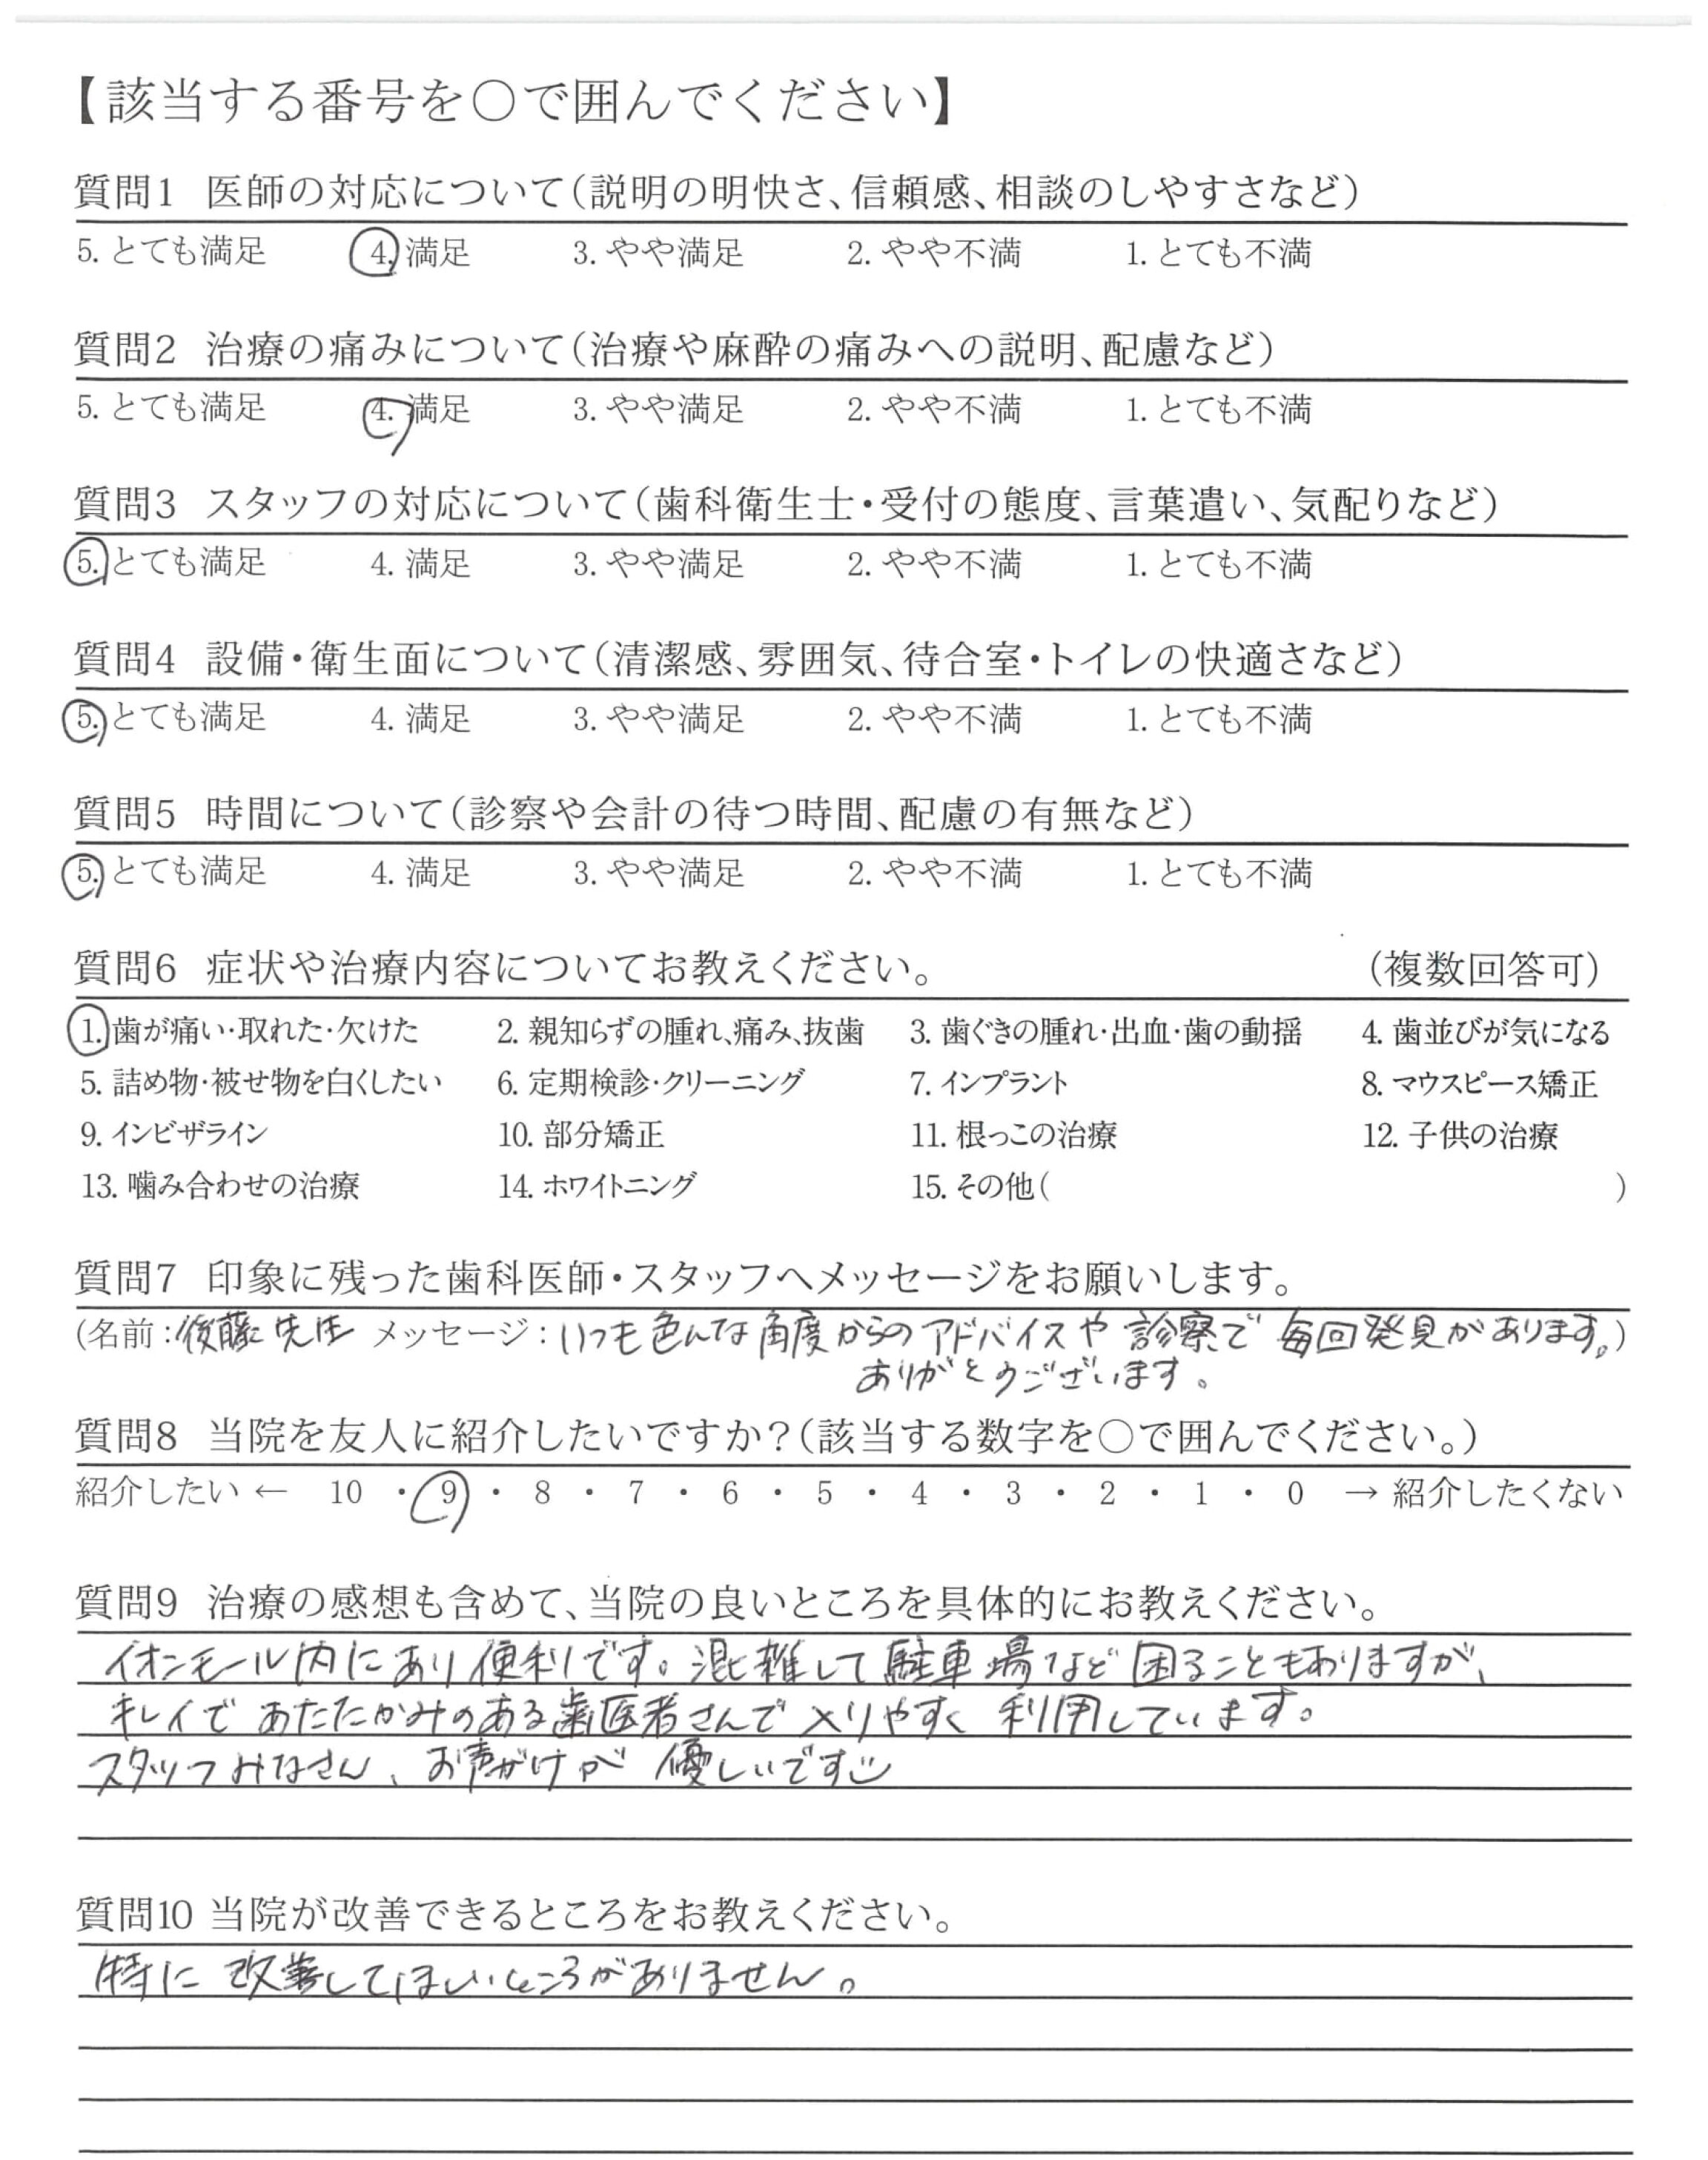 【該当する番号を○で囲んでください】
質問1 医師の対応について(説明の明快さ、信頼感、相談のしやすさなど)
5. とても満足 4. 満足 3. やや満足 2. やや不満 1. とても不満
質問2 治療の痛みについて(治療や麻酔の痛みへの説明、配慮など)
5. とても満足 4. 満足 3. やや満足 2. やや不満 1. とても不満
質問3 スタッフの対応について(歯科衛生士・受付の態度、言葉遣い、気配りなど)
5. とても満足 4. 満足 3. やや満足 2. やや不満 1. とても不満
質問4 設備・衛生面について(清潔感、雰囲気、待合室・トイレの快適さなど)
5. とても満足 4. 満足 3. やや満足 2. やや不満 1. とても不満
質問5 時間について(診察や会計の待つ時間、配慮の有無など)
5. とても満足 4. 満足 3. やや満足 2. やや不満 1. とても不満
質問6 症状や治療内容についてお教えください。 (複数回答可)
1. 歯が痛い・取れた・欠けた 2. 親知らずの腫れ、痛み、抜歯 3. 歯ぐきの腫れ・出血・歯の動揺 4. 歯並びが気になる
5. 詰め物・被せ物を白くしたい 6. 定期検診・クリーニング 7. インプラント 8. マウスピース矯正
9. インビザライン 10. 部分矯正 11. 根っこの治療 12. 子供の治療
13. 噛み合わせの治療 14. ホワイトニング 15. その他( )
質問7 印象に残った歯科医師・スタッフへメッセージをお願いします。
(名前:後藤先生 メッセージ:いつも色んな角度からのアドバイスや診察で毎回発見があります。)
ありがとうございます。
質問8 当院を友人に紹介したいですか?(該当する数字を○で囲んでください。)
紹介したい ← 10 ・ 9 ・ 8 ・ 7 ・ 6 ・ 5 ・ 4 ・ 3 ・ 2 ・ 1 ・ 0 → 紹介したくない
質問9 治療の感想も含めて、当院の良いところを具体的にお教えください。
イオンモール内にあり便利です。混雑して駐車場など困ることもありますが、
キレイであたたかみのある歯医者さんで入りやすく利用しています。
スタッフみなさん、お声がけが優しいです
質問10 当院が改善できるところをお教えください。
特に改善してほしいところがありません。